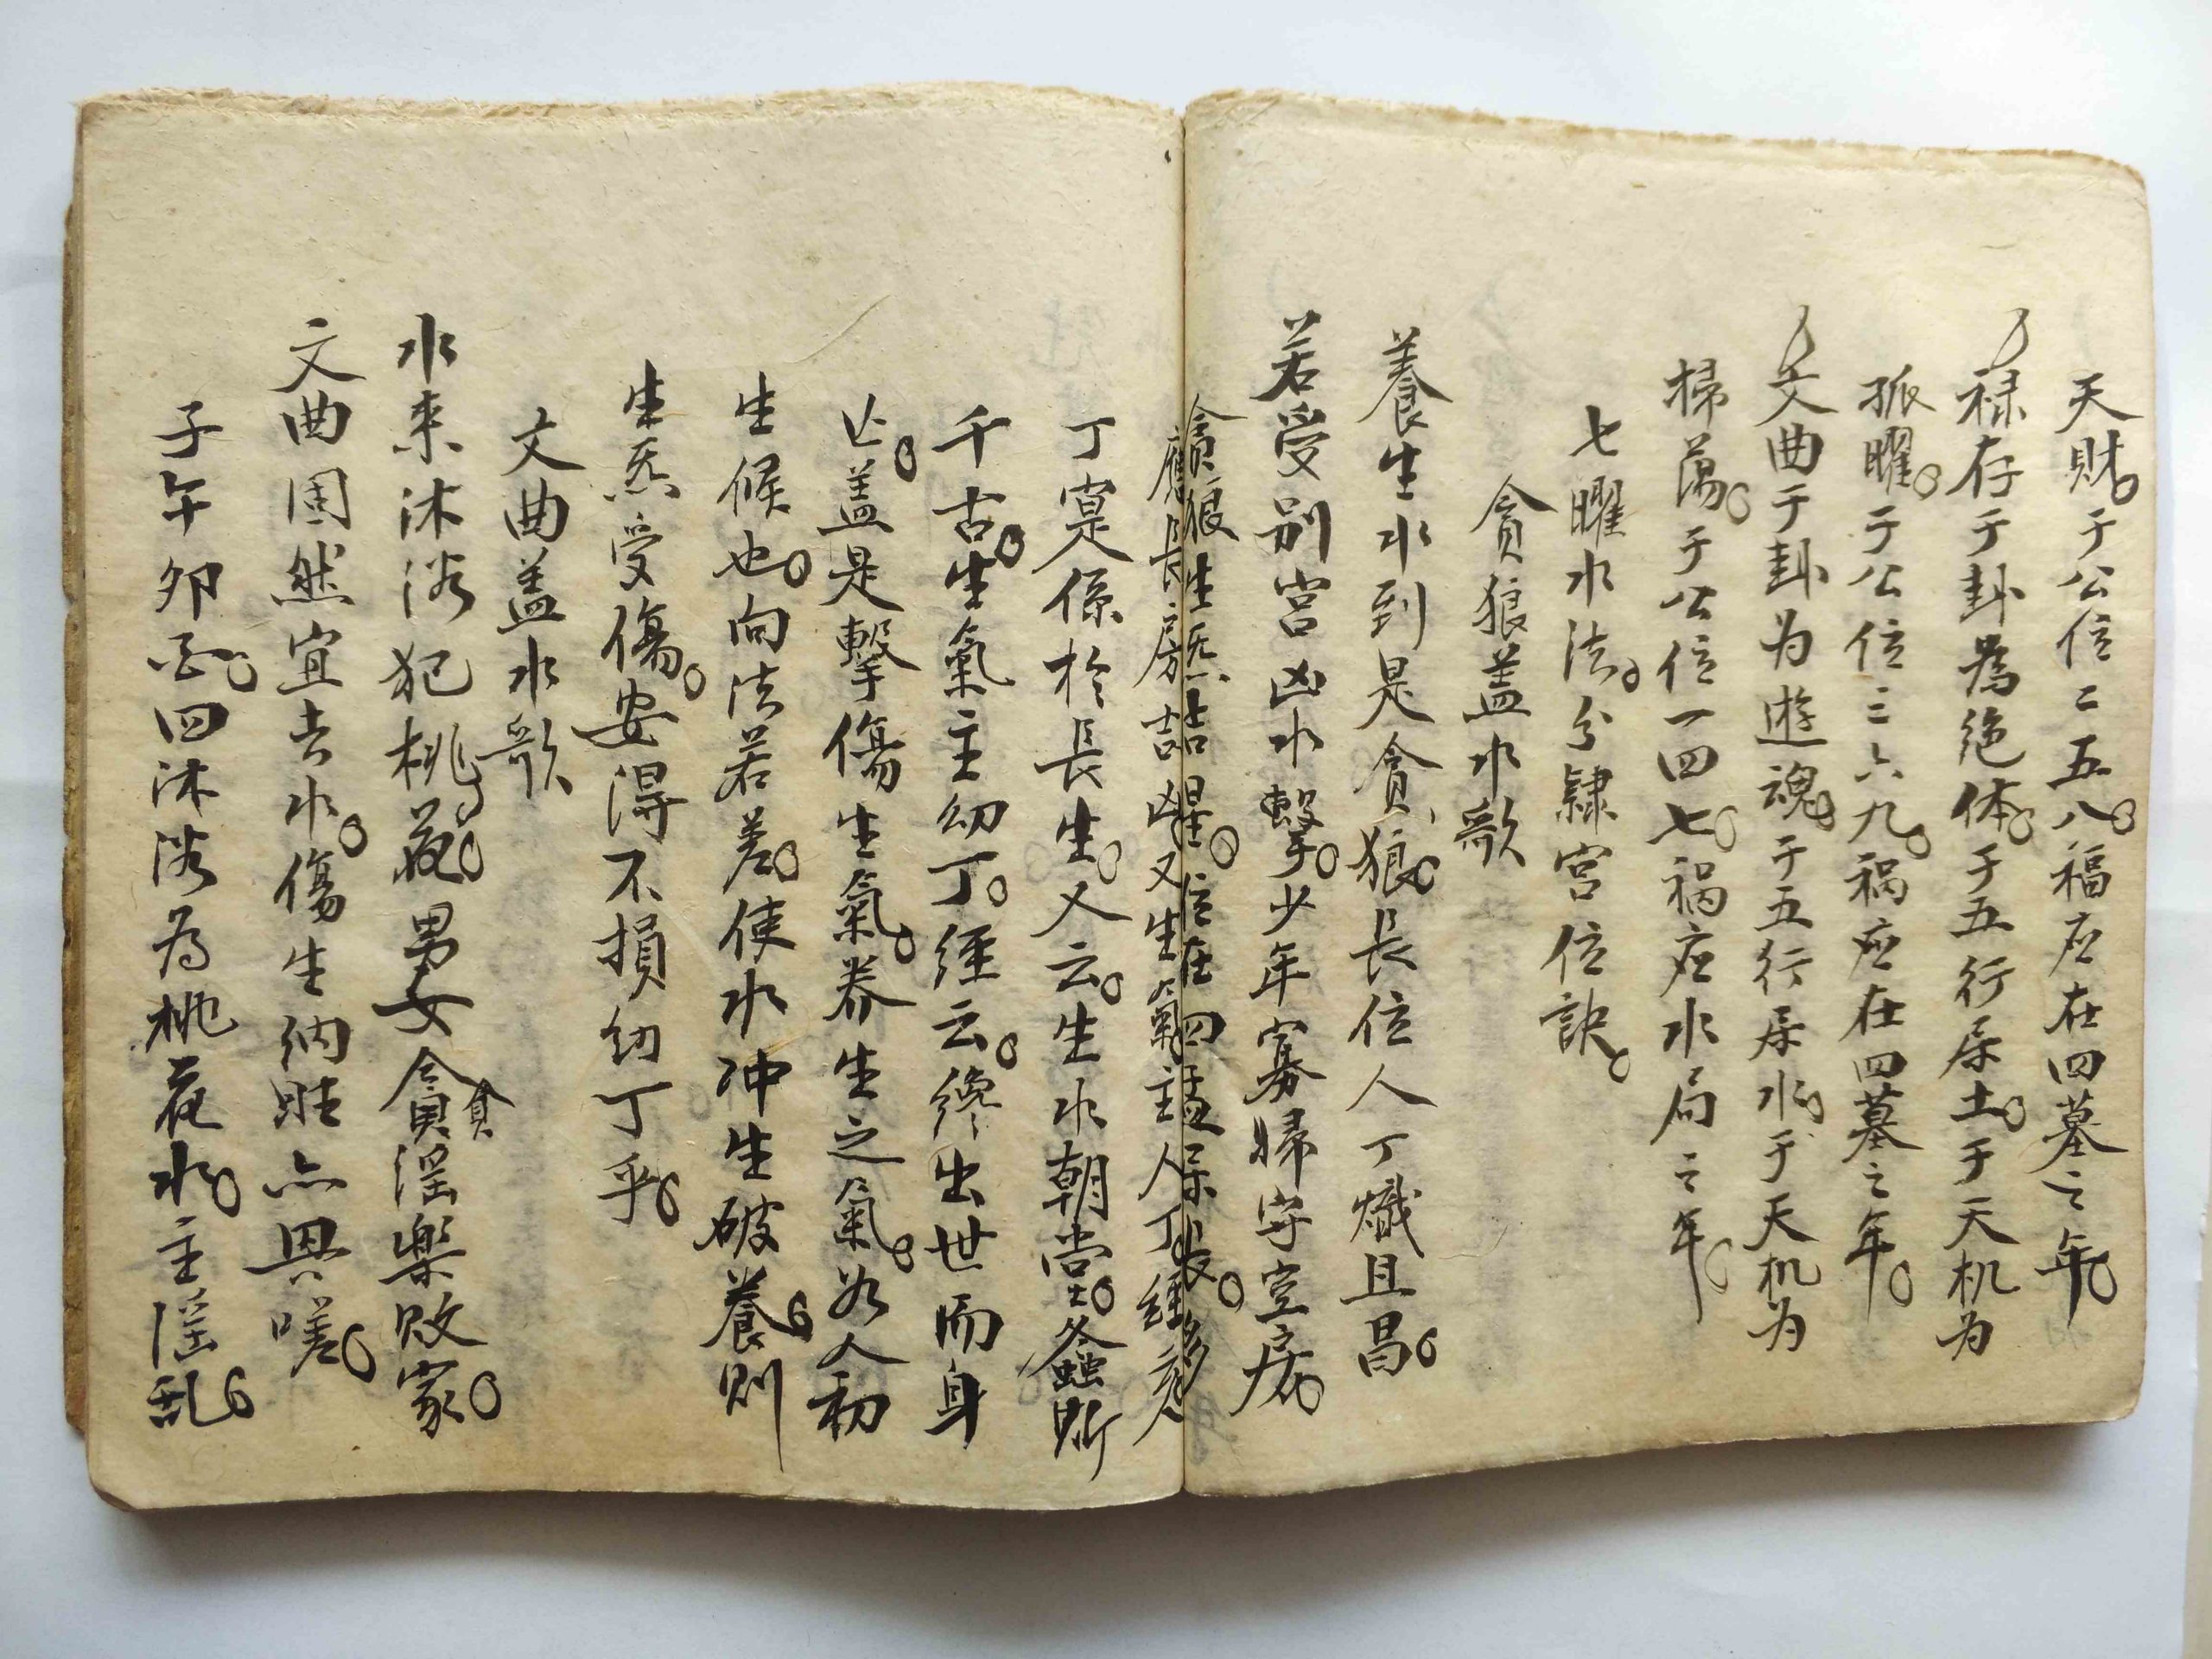 天財。于公位二五八。福应在四墓之年。
禄存于卦為绝体。于五行属土。于天机为
孤曜。于公位三六九。祸应在四墓之年。
文曲于卦为遊魂。于五行属水。于天机为
掃蕩。于公位一四七。祸应水局之年。
七曜水法。分隸宮位訣。
貪狼盖水歌
養生水到是貪狼。長位人丁熾且昌。
若受别宫凶水擊。少年寡婦守空房。
貪狼生炁。位在四孟属長。
應長房吉凶又生氣主人丁經
丁寔係於長生。又云。生水朝堂。螽斯
千古。生氣主幼丁。經云。纔出世而身
亡。盖是擊傷生氣。养生之氣。如人初
生候也。向法若差。使水冲生破養。則
生炁受傷。安得不損幼丁乎。
文曲盖水歌
水来沐浴犯桃花。男女貪貪淫樂敗家。
文曲固然宜去水。傷生納旺亦興嗟。
子午卯酉。四沐浴為桃花水。主淫乱。